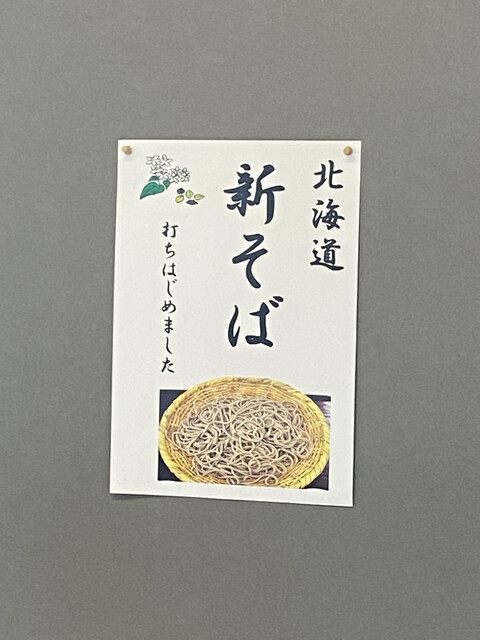 北海道
新そば
打ちはじめました